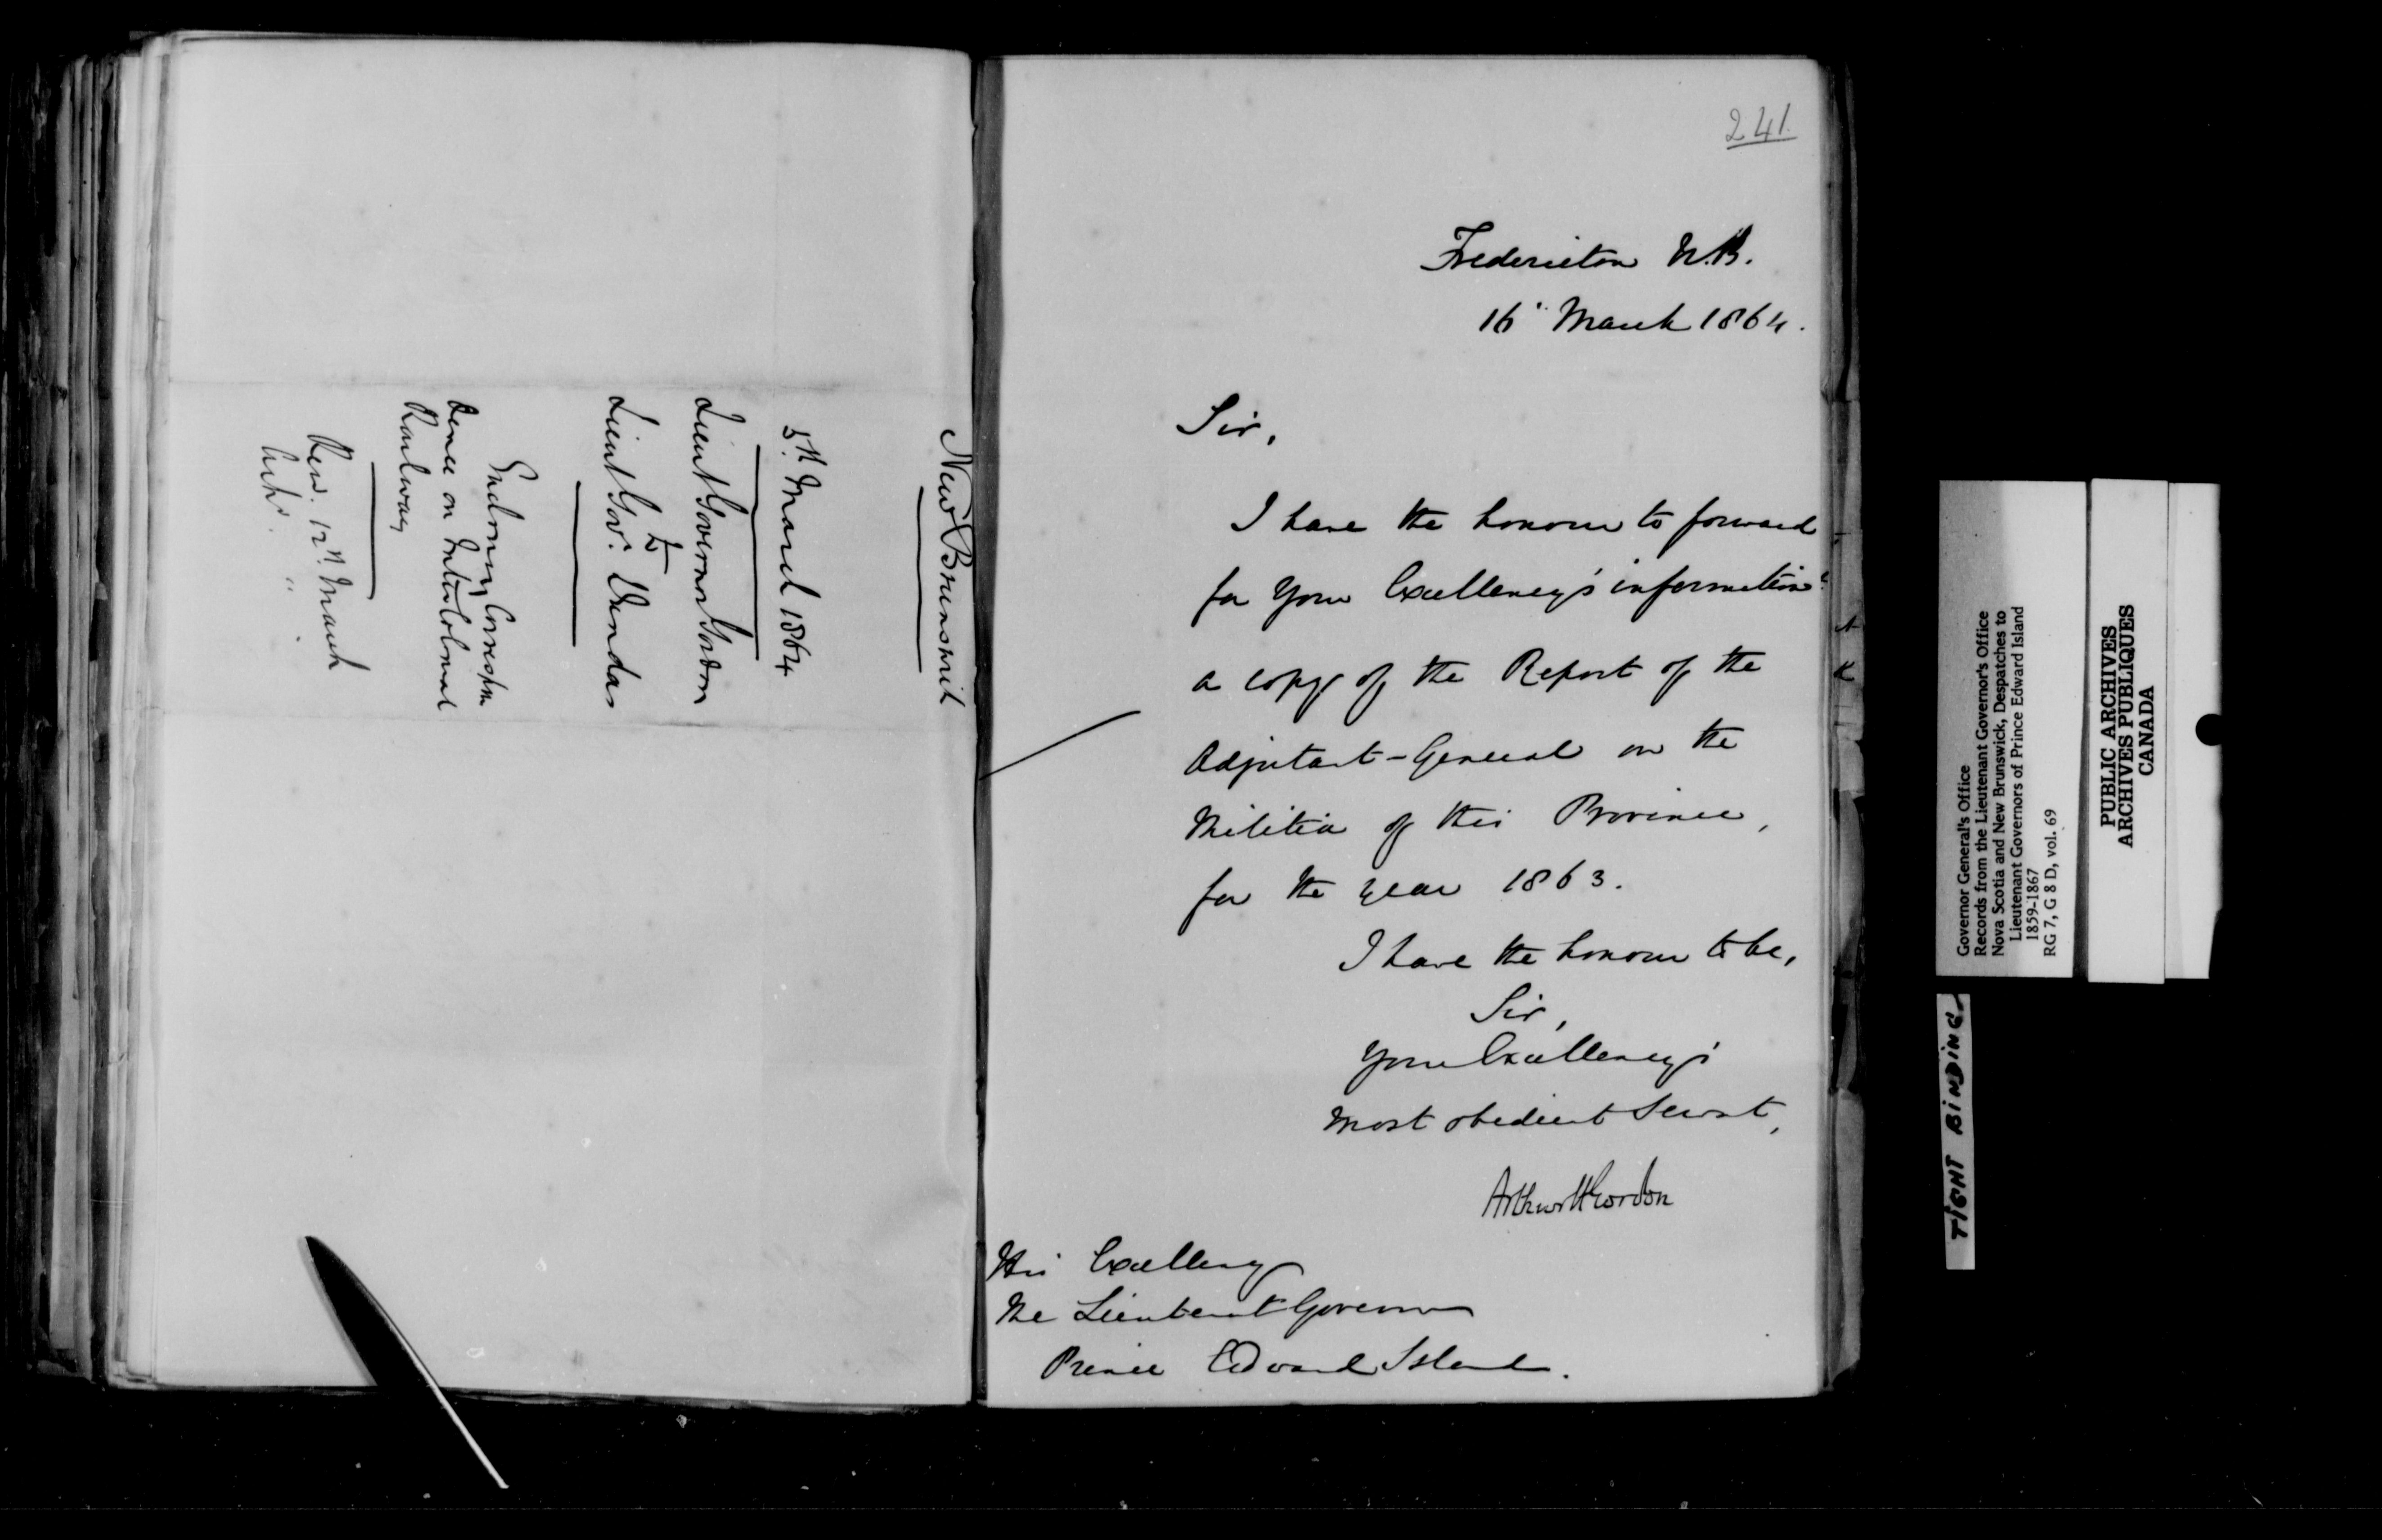 New Brunswick
5th March 1864
Lieut Governor Gordon
to
Lieut Gov. Dundas
Enclosing Correspon
dence on InterColonial
Railway
Recd. 12th March
Ackd. " "
241.
Fredericton N.B.
16 March 1864.
Sir,
I have the honour to forward
for Your Excellency's information
a copy of the Report of the
Adjutant-General on the
Militia of this Province,
for the year 1863.
I have the honour to be,
Sir,
Your Excellency's
most obedient Servt,
Arthur H Gordon
His Excellency
The Lieutenant Governor
Prince Edward Island.
Governor General's Office
Records from the Lieutenant Governor's Office
Nova Scotia and New Brunswick, Despatches to
Lieutenant Governors of Prince Edward Island
1859-1867
RG 7, G 8 D, vol. 69
PUBLIC ARCHIVES
ARCHIVES PUBLIQUES
CANADA
TIGHT BINDING